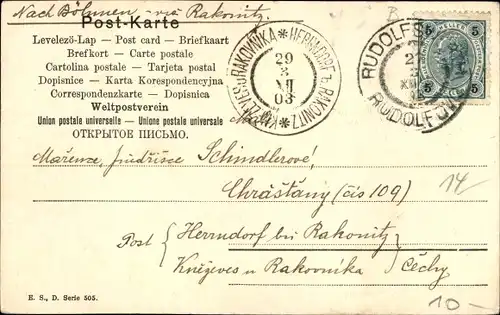 Nach Böhmen - via Rakonitz.
Post-Karte
Levelező-Lap — Post card — Briefkaart
Brefkort — Carte postale
Cartolina postale — Tarjeta postal
Dopisnice - Karta Korespondencyjna
Correspondenzkarte — Dopisnica
Weltpostverein
Union postale universelle — Unione postale universale
ОТКРЫТОЕ ПИСЬМО.
KNĚŽEVES U RAKOVNÍKA * HERRNDORF b. RAKONITZ *
29
XII
03
RUDOLFS
RUDOLFOV
5 HELLER 5
5 5
Mařence, Jindřišce Schindlerové,
Chrášťany (čís 109)
14
Post { Herrndorf bei Rakonitz }
Kněževes u Rakovníka } Čechy
E. S., D. Serie 505.
10-